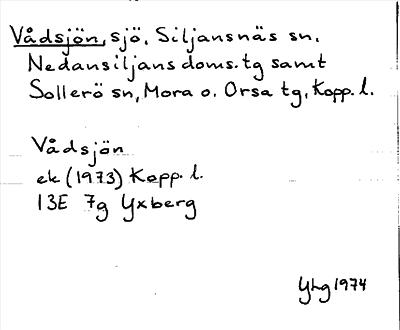 Vådsjön, sjö, Siljansnäs sn,
Nedansiljans doms. tg samt
Sollerö sn, Mora o. Orsa tg, Kopp. l.
Vådsjön
ek (1973) Kopp. l.
13E 7g Yxberg
YLg 1974